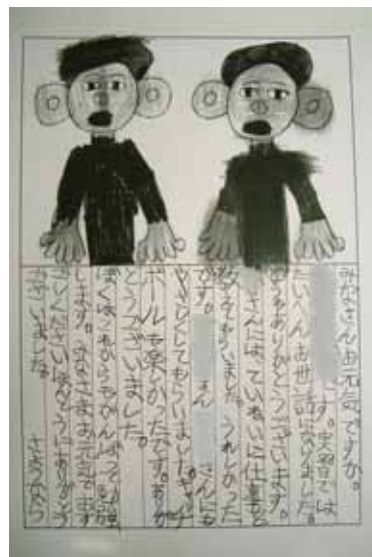 みなさんお元気ですか。
です。実習では
たいへんお世話になりました。
ありがとうございます。
さんには、ていねいに仕事を
教えてもらいました。うれしかった
です。さんさんにも
してもらいました。
ボールも楽しかったです。あり
とうございました。
ぼくはこれからもがんばって
します。みなさまお元気で
ください。ほんとうにありがとう
ございました。